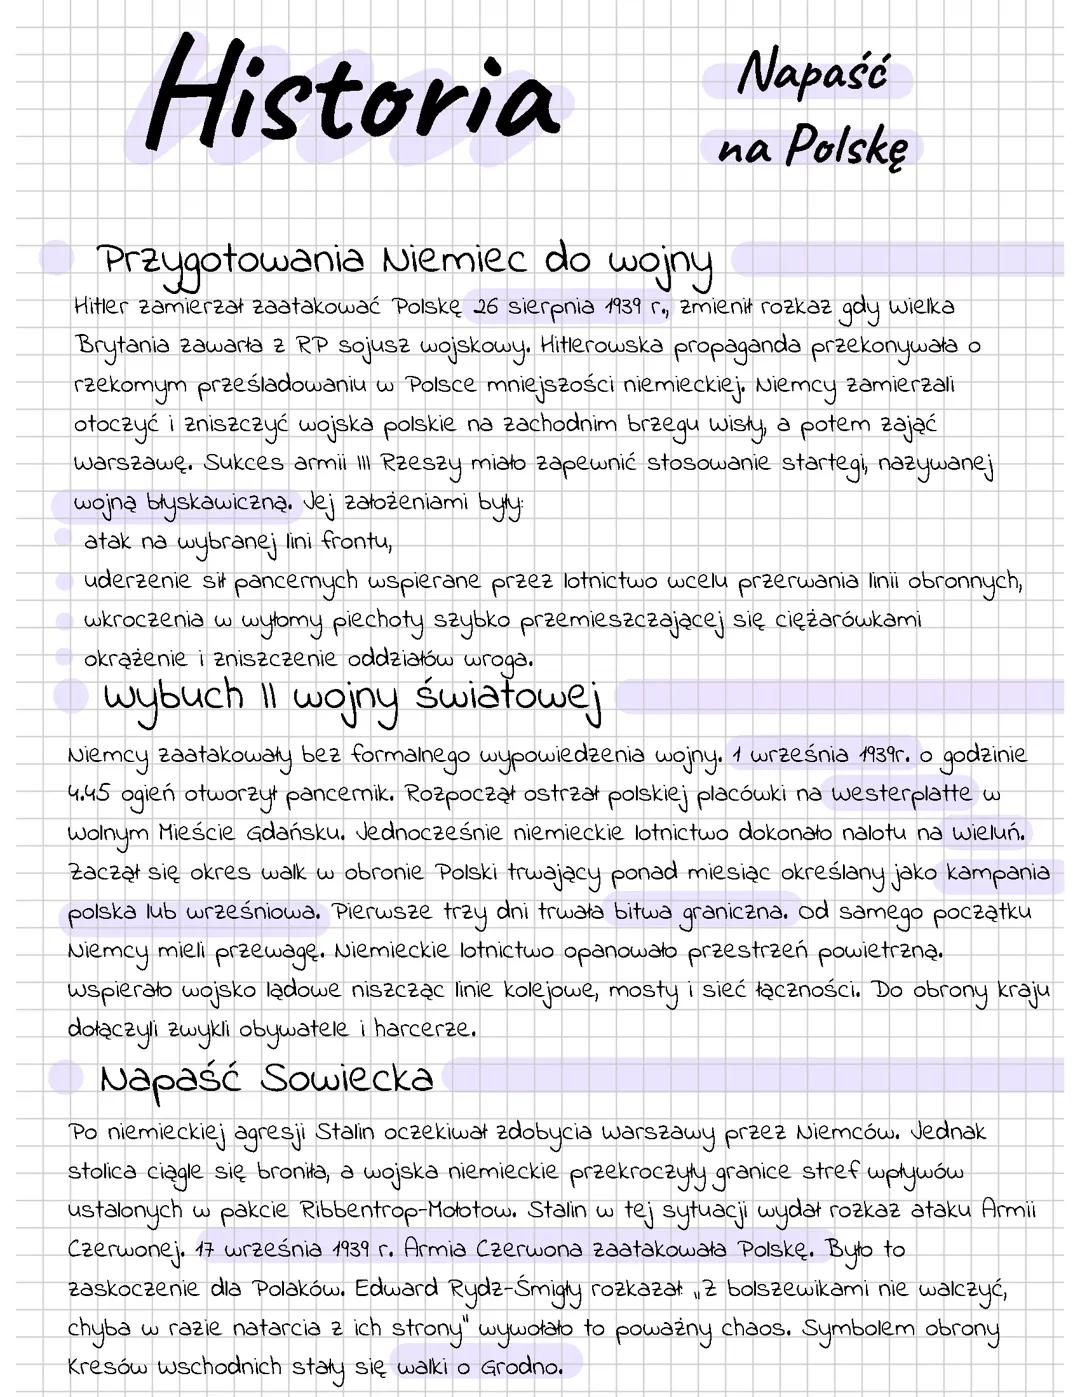 Historia
Napaść
na Polskę
Przygotowania Niemiec do wojny
Hitler zamierzał zaatakować Polskę 26 sierpnia 1939 r., zmienił rozkaz gdy Wielka
Brytania zawarła z RP sojusz wojskowy. Hitlerowska propaganda przekonywała o
rzekomym prześladowaniu w Polsce mniejszości niemieckiej. Niemcy zamierzali
otoczyć i zniszczyć wojska polskie na zachodnim brzegu Wisły, a potem zająć
Warszawę. Sukces armii III Rzeszy miało zapewnić stosowanie startegi, nazywanej
wojną błyskawiczną. Jej założeniami były:
atak na wybranej lini frontu,
uderzenie sił pancernych wspierane przez lotnictwo wcelu przerwania linii obronnych,
wkroczenia w wyłomy piechoty szybko przemieszczającej się ciężarówkami
okrążenie i zniszczenie oddziałów wroga.
Wybuch II wojny światowej
Niemcy zaatakowały bez formalnego wypowiedzenia wojny. 1 września 1939r. o godzinie
4.45 ogień otworzył pancernik. Rozpoczął ostrzał polskiej placówki na Westerplatte w
Wolnym Mieście Gdańsku. Jednocześnie niemieckie lotnictwo dokonało nalotu na Wieluń.
Zaczął się okres walk w obronie Polski trwający ponad miesiąc określany jako kampania
polska lub wrześniowa. Pierwsze trzy dni trwała bitwa graniczna. Od samego początku
Niemcy mieli przewagę. Niemieckie lotnictwo opanowało przestrzeń powietrzną.
Wspierało wojsko lądowe niszcząc linie kolejowe, mosty i sieć łączności. Do obrony kraju
dołączyli zwykli obywatele i harcerze.
Napaść Sowiecka
Po niemieckiej agresji Stalin oczekiwał zdobycia Warszawy przez Niemców. Jednak
stolica ciągle się broniła, a wojska niemieckie przekroczyły granice stref wpływów
ustalonych w pakcie Ribbentrop-Mołotow. Stalin w tej sytuacji wydał rozkaz ataku Armii
Czerwonej. 17 września 1939 r. Armia Czerwona zaatakowała Polskę. Było to
zaskoczenie dla Polaków. Edward Rydz-Śmigły rozkazał: „Z bolszewikami nie walczyć,
chyba w razie natarcia z ich strony" wywołało to poważny chaos. Symbolem obrony
Kresów Wschodnich stały się walki o Grodno.